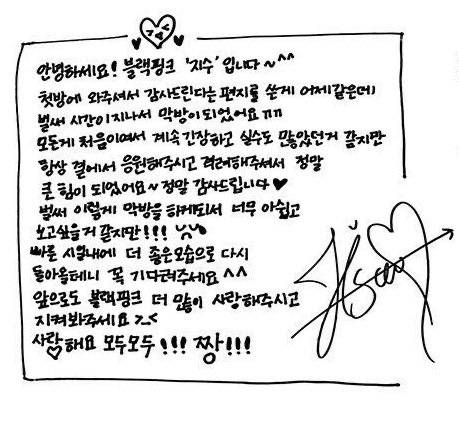 안녕하세요! 블랙핑크 '지수' 입니다~^^
첫방에 와주셔서 감사드린다는 편지를 쓴게 어제같은데
벌써 시간이 지나서 막방이 되었어요 ㅠㅠ
모든게 처음이여서 계속 긴장하고 실수도 많았던거 같지만
항상 곁에서 응원해주시고 격려해주셔서 정말
큰 힘이 되었어요~ 정말 감사드립니다♥
벌써 이렇게 막방을 하게되서 너무 아쉽고
보고싶을거 같지만!!!
빠른 시일내에 더 좋은모습으로 다시
돌아올테니 꼭 기다려주세요^^
앞으로도 블랙핑크 더 많이 사랑해주시고
지켜봐주세요 >_<
사랑♡해요 모두모두!!! 짱!!!
Jisoo